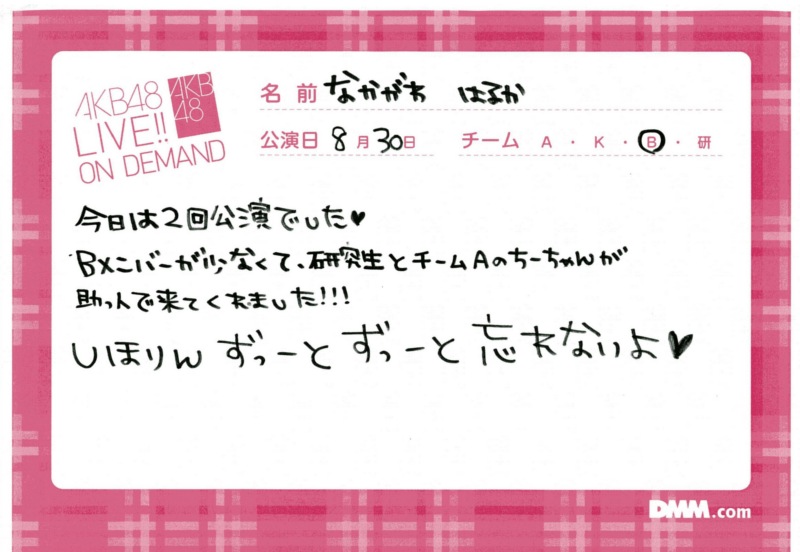 AKB48
LIVE!!
ON DEMAND
AKB
48
名前 なかがわ はるか
公演日 8月30日 チーム A・K・B・研
今日は2回公演でした♥
Bメンバーが少なくて、研究生とチームAのちーちゃんが
助っ人で来てくれました!!!
しほりん ずっーと ずっーと 忘れないよ♥
DMM.com